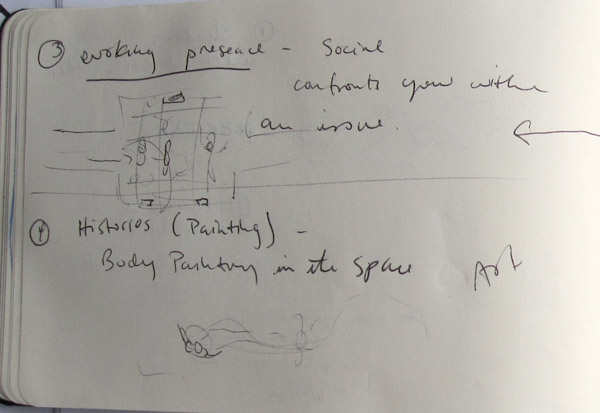 ③ evoking presence - Social
confronts you with
an issue.
④ Histories (Painting) -
Body Painting in the Space
Art